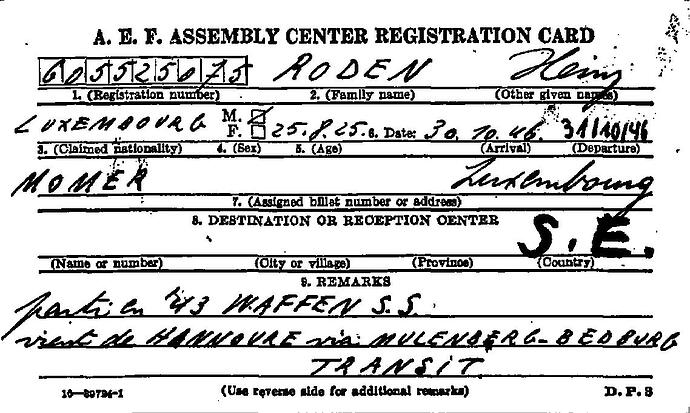 A. E. F. ASSEMBLY CENTER REGISTRATION CARD
6055525075 RODEN Heinz
1. (Registration number) 2. (Family name) (Other given names)
LUXEMBOURG M. F. 25.8.25. 6. Date: 30.10.46. 31/10/46
3. (Claimed nationality) 4. (Sex) 5. (Age) (Arrival) (Departure)
MOMER Luxembourg
7. (Assigned billet number or address)
8. DESTINATION OR RECEPTION CENTER
S.E.
(Name or number) (City or village) (Province) (Country)
9. REMARKS
parti en '43 WAFFEN S.S.
vient de HANNOVRE via MULENBERG-BEDBURG
TRANSIT
16-39724-1 (Use reverse side for additional remarks) D.P.2